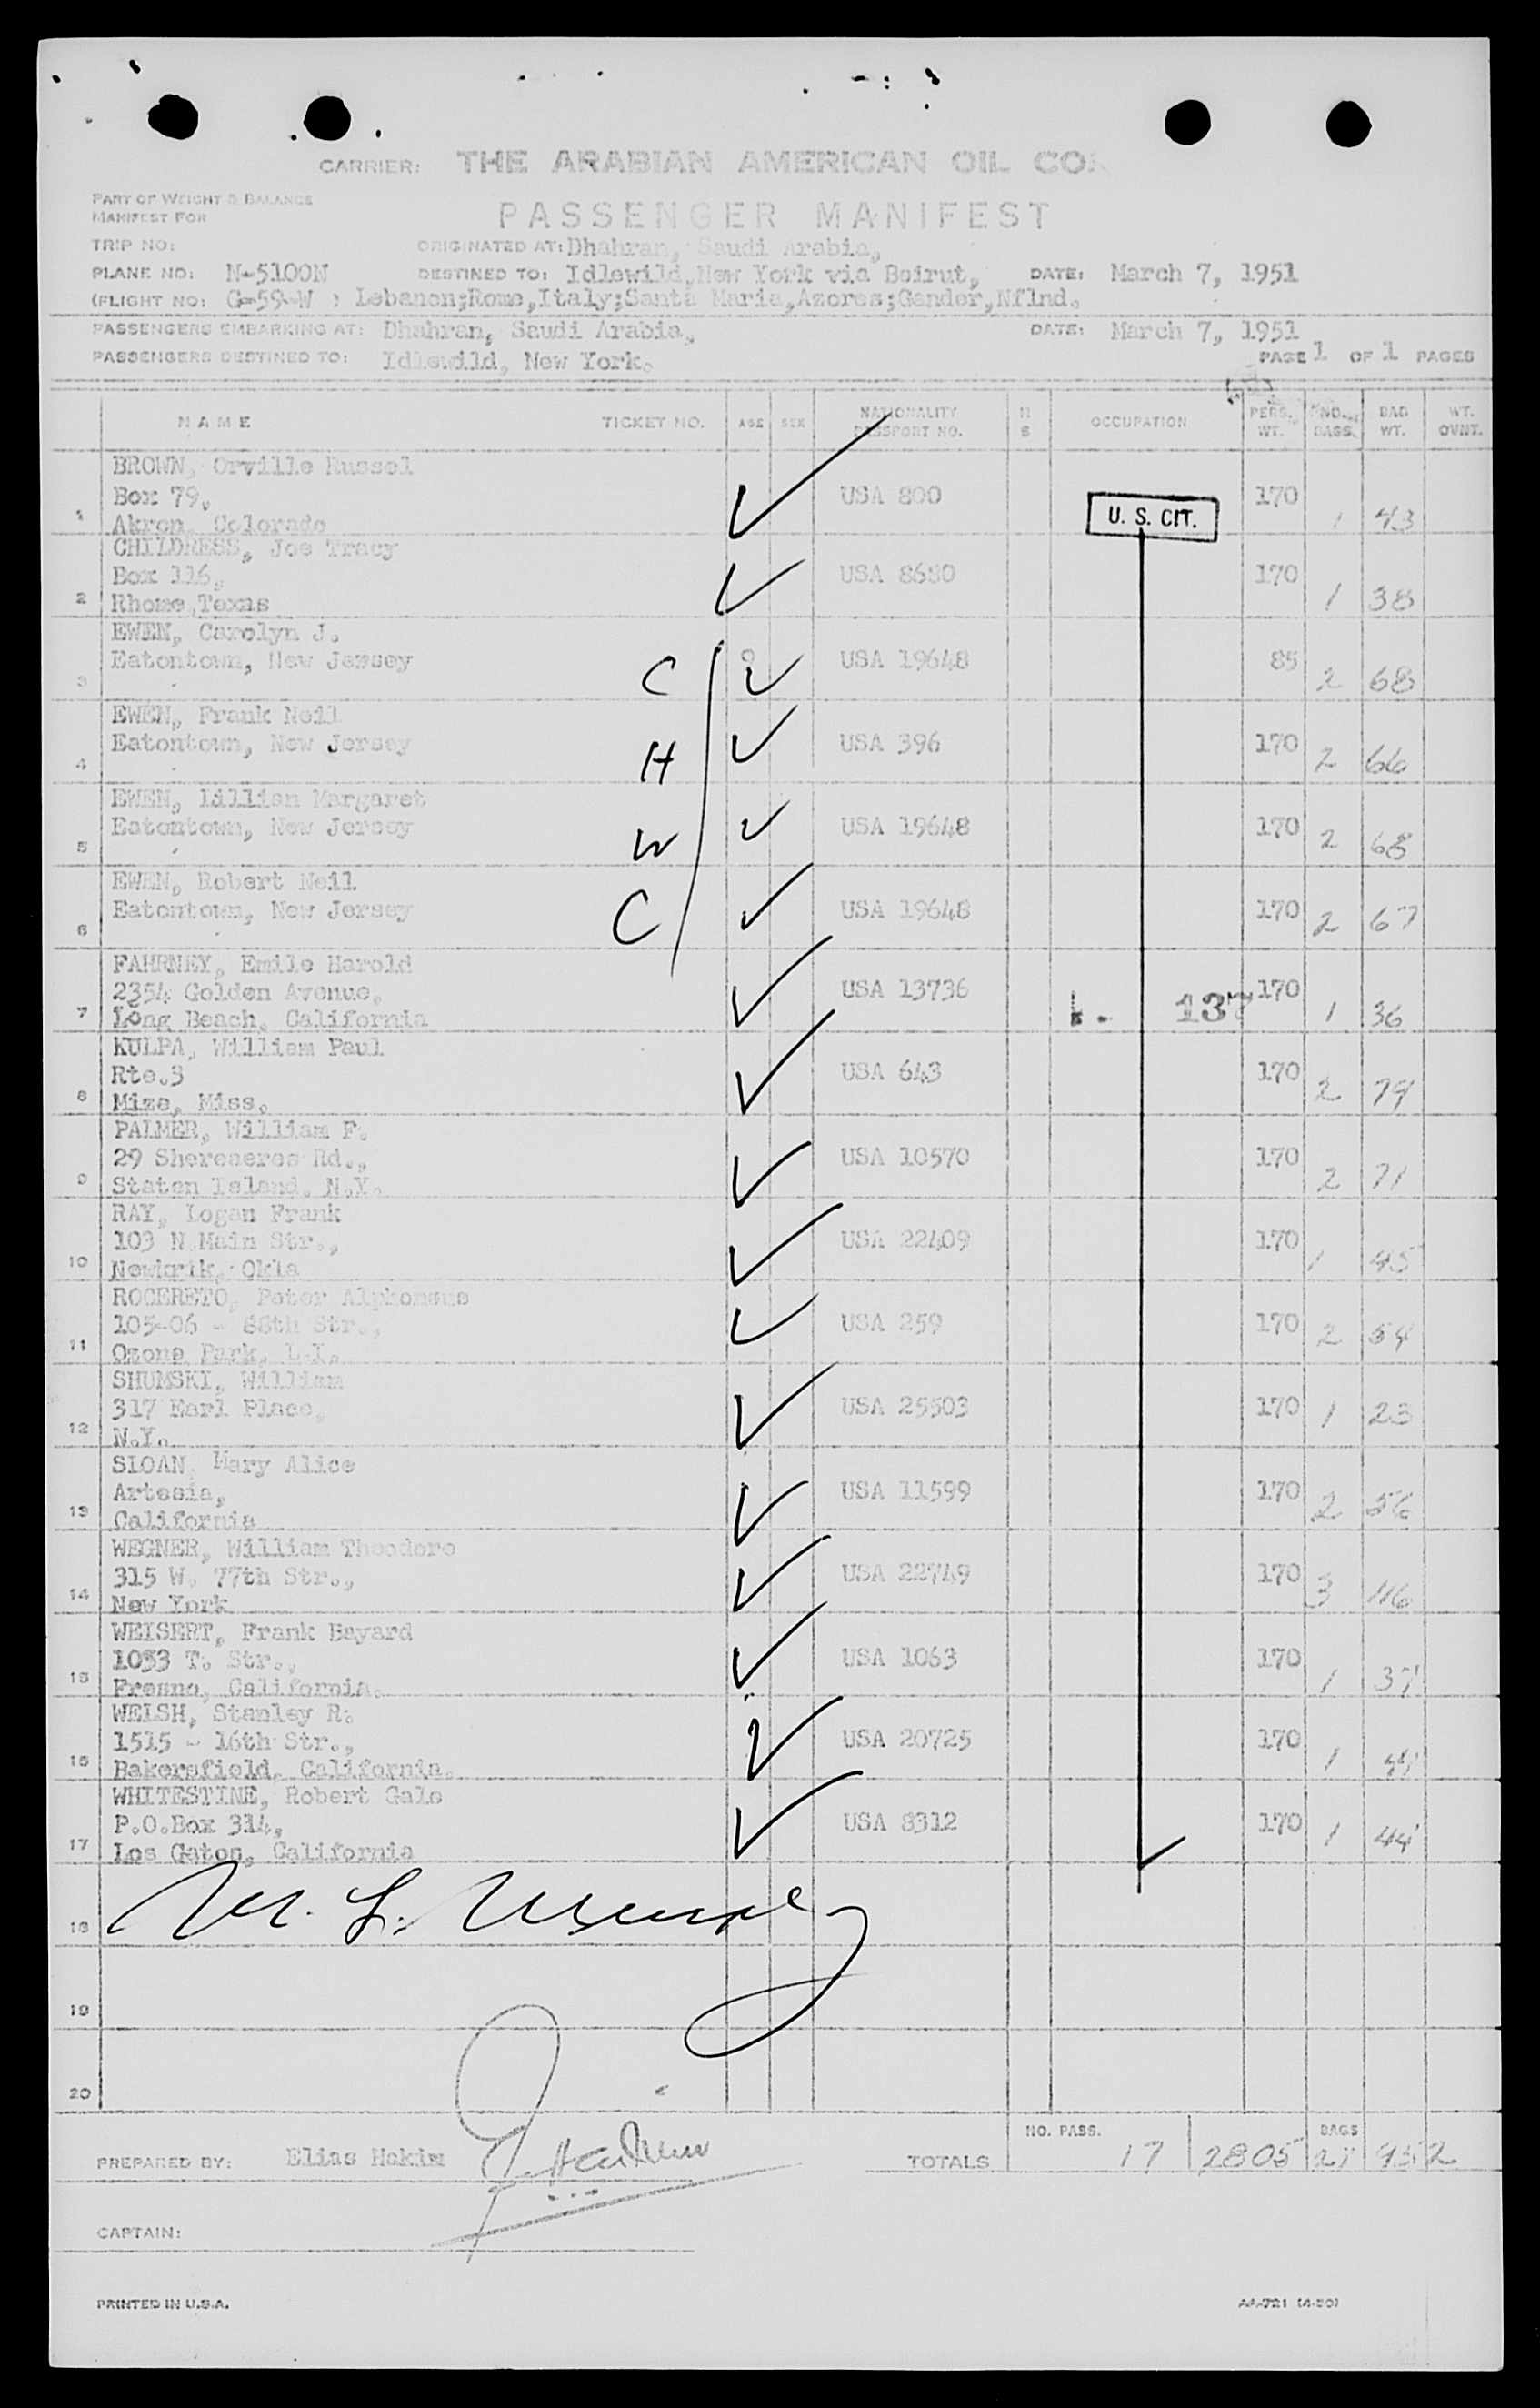 CARRIER: THE ARABIAN AMERICAN OIL CO
PART OF WEIGHT & BALANCE
MANIFEST FOR
PASSENGER MANIFEST
TRIP NO: ORIGINATED AT: Dhahran, Saudi Arabia,
PLANE NO: N-5100N DESTINED TO: Idlewild, New York via Beirut, DATE: March 7, 1951
(FLIGHT NO: G-59-W ) Lebanon;Rome,Italy;Santa Maria,Azores;Gander,Nflnd.
PASSENGERS EMBARKING AT: Dhahran, Saudi Arabia, DATE: March 7, 1951
PASSENGERS DESTINED TO: Idlewild, New York. PAGE 1 OF 1 PAGES
NAME TICKET NO. AGE SEX NATIONALITY PASSPORT NO. OCCUPATION PERS. WT. NO. BAGS. BAG WT. WT. OVWT.
BROWN, Orville Russel
Box 79, USA 800 170
1 Akron, Colorado U. S. CIT. 1 43
CHILDRESS, Joe Tracy
Box 116, USA 8680 170
2 Rhome,Texas 1 38
EWEN, Carolyn J.
Eatontown, New Jersey USA 19648 85
3 C 2 68
EWEN, Frank Neil
Eatontown, New Jersey USA 396 170
4 H 2 66
EWEN, Lillian Margaret
Eatontown, New Jersey USA 19648 170
5 W 2 68
EWEN, Robert Neil
Eatontown, New Jersey USA 19648 170
6 C 2 67
FAHRNEY, Emile Harold
2354 Golden Avenue, USA 13736 170
7 Long Beach, California 137 1 36
KULPA, William Paul
Rte.3 USA 643 170
8 Mize, Miss. 2 79
PALMER, William F.
29 Shereceres Rd., USA 10570 170
9 Staten Island, N.Y. 2 71
RAY, Logan Frank
103 N Main Str., USA 22409 170
10 Newkrik, Okla 1 45
ROCERETO, Peter Alphonsus
105-06 - 88th Str., USA 259 170
11 Ozone Park, L.I. 2 54
SHUMSKI, William
317 Earl Place, USA 25503 170
12 N.Y. 1 23
SLOAN, Mary Alice
Artesia, USA 11599 170
13 California 2 56
WEGNER, William Theodore
315 W. 77th Str., USA 22749 170
14 New York 3 116
WEISERT, Frank Bayard
1053 T. Str., USA 1063 170
15 Fresno, California. 1 37
WELSH, Stanley R.
1515 - 16th Str., USA 20725 170
16 Bakersfield, California. 1
WHITESTINE, Robert Gale
P.O.Box 314, USA 8312 170
17 Los Gatos, California 1 44
18
19
20
NO. PASS. BAGS
PREPARED BY: Elias Hakim TOTALS 17 2805 27 952
CAPTAIN:
PRINTED IN U.S.A. AA-721 (4-50)